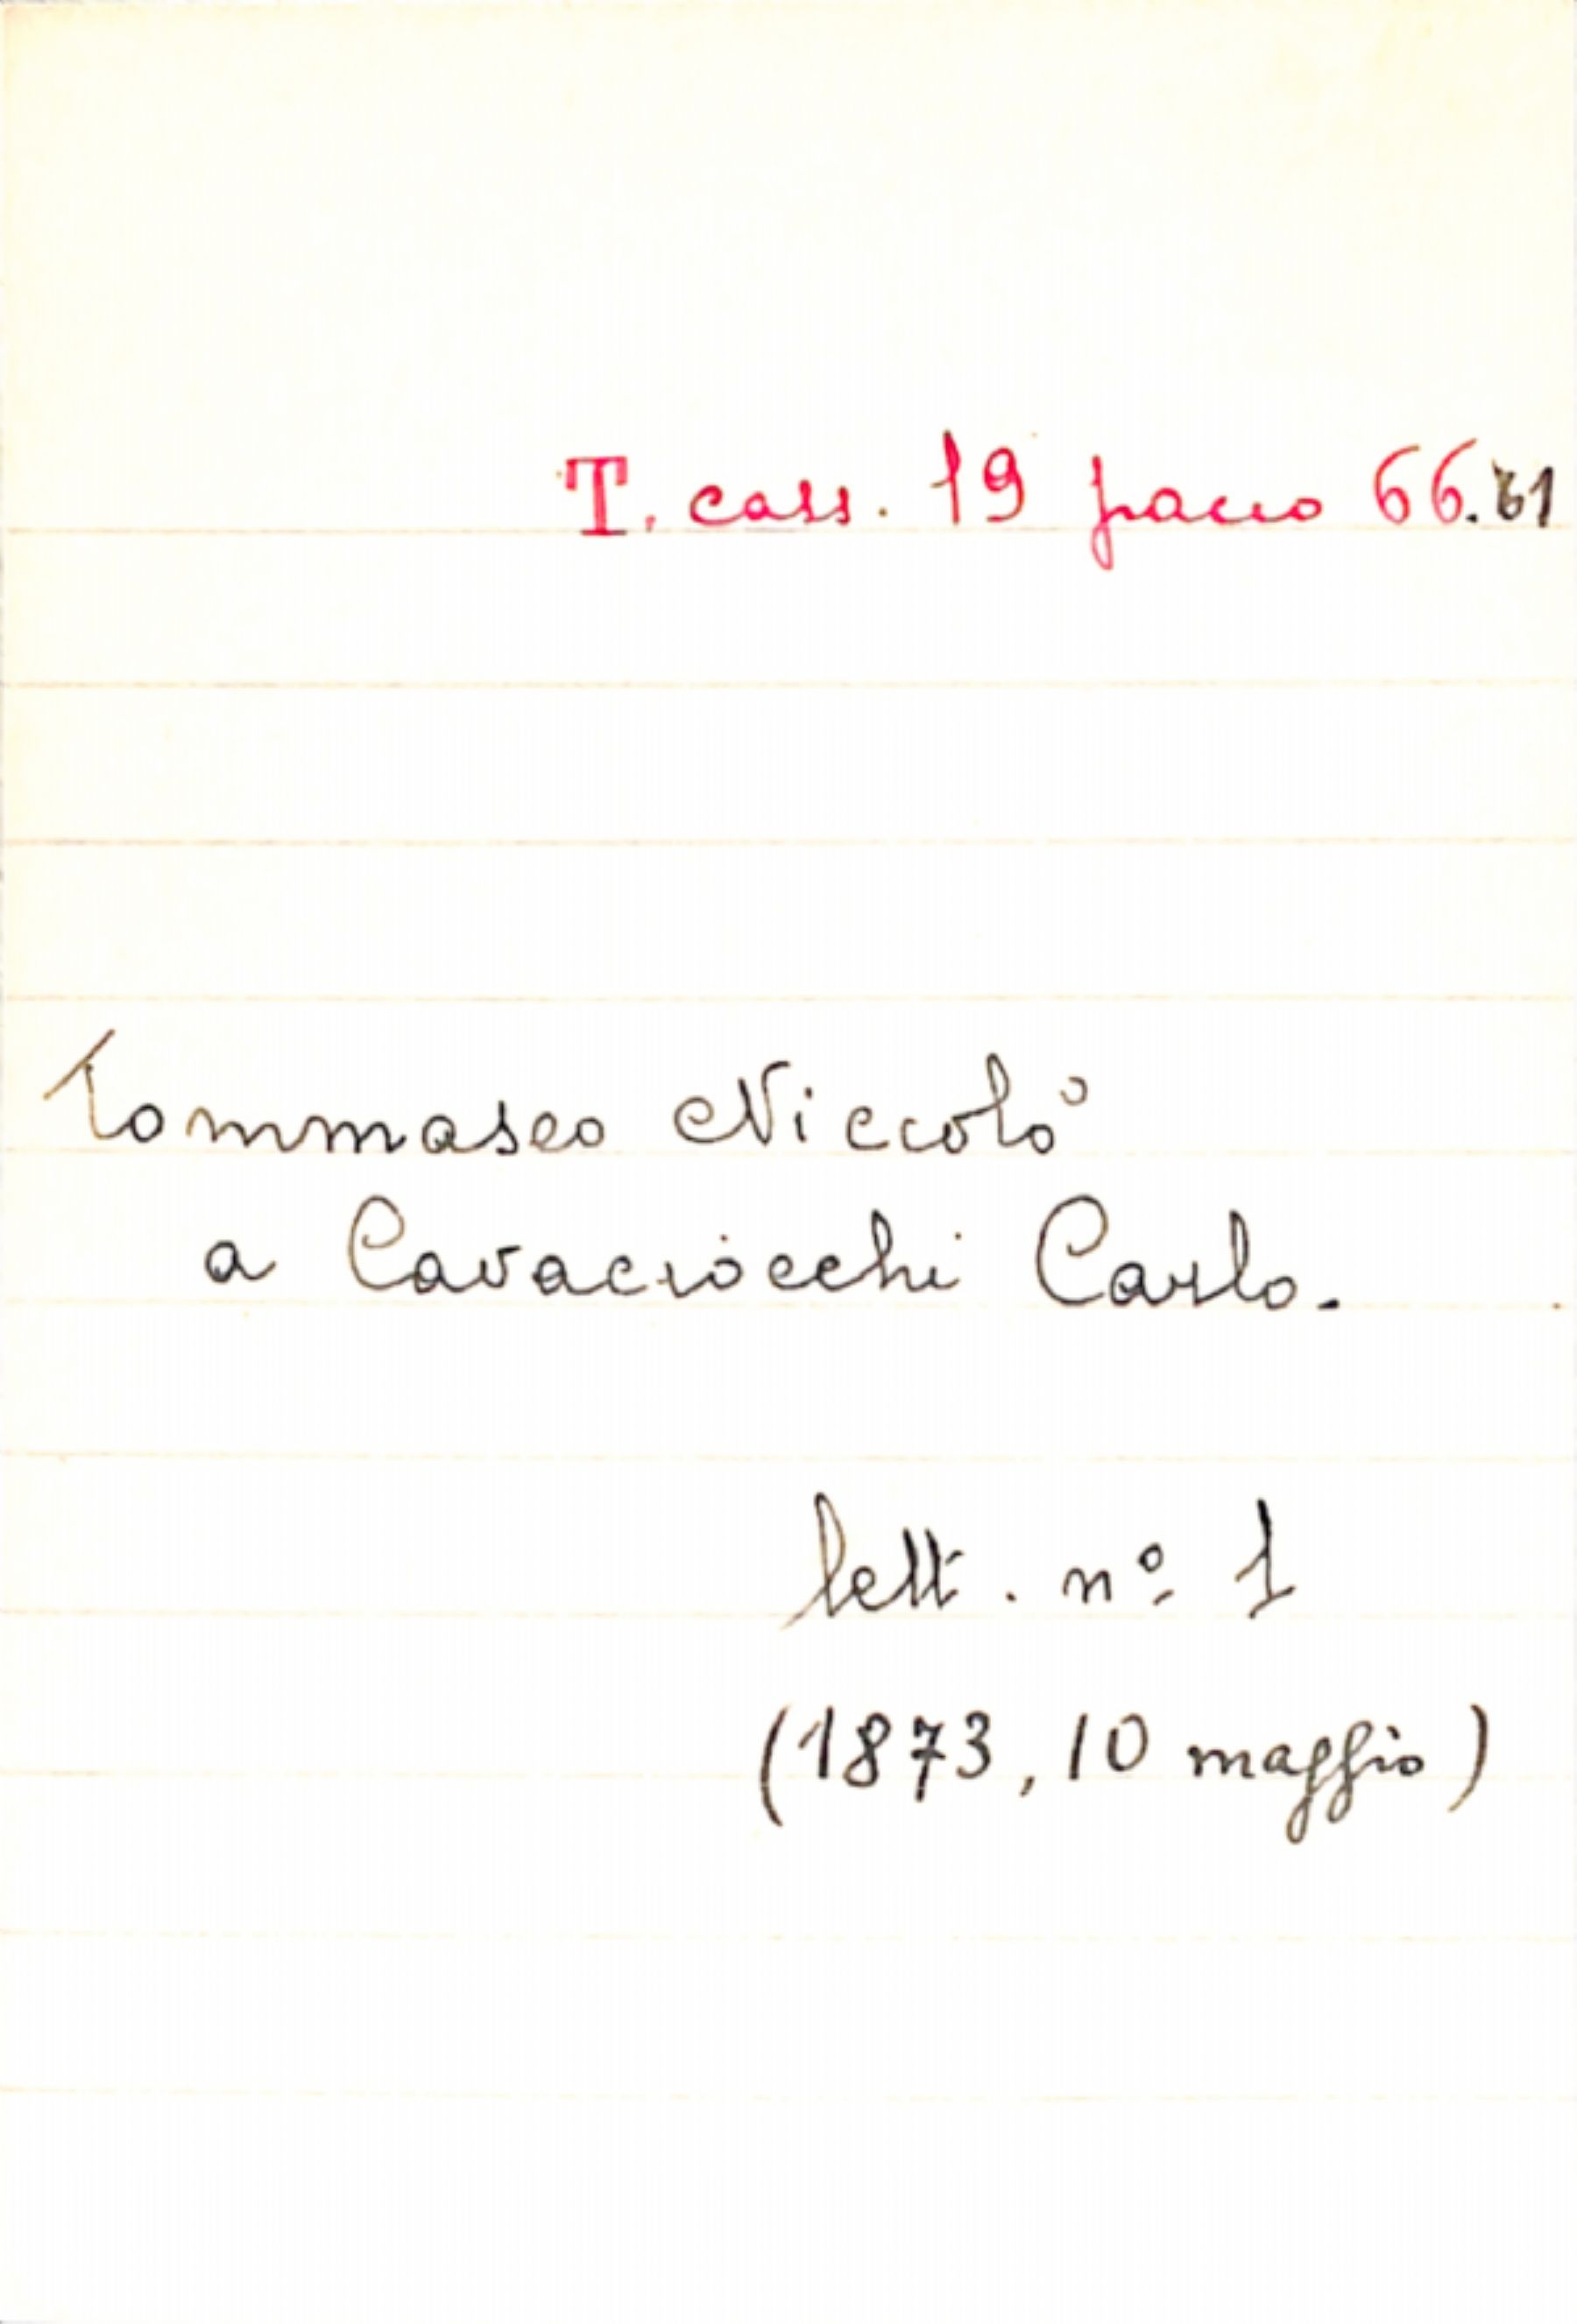 T. cass. 19 pacco 66.61
Tommaseo Niccolò
a Cavaciocchi Carlo.
lett. nº 1
(1873, 10 maggio)